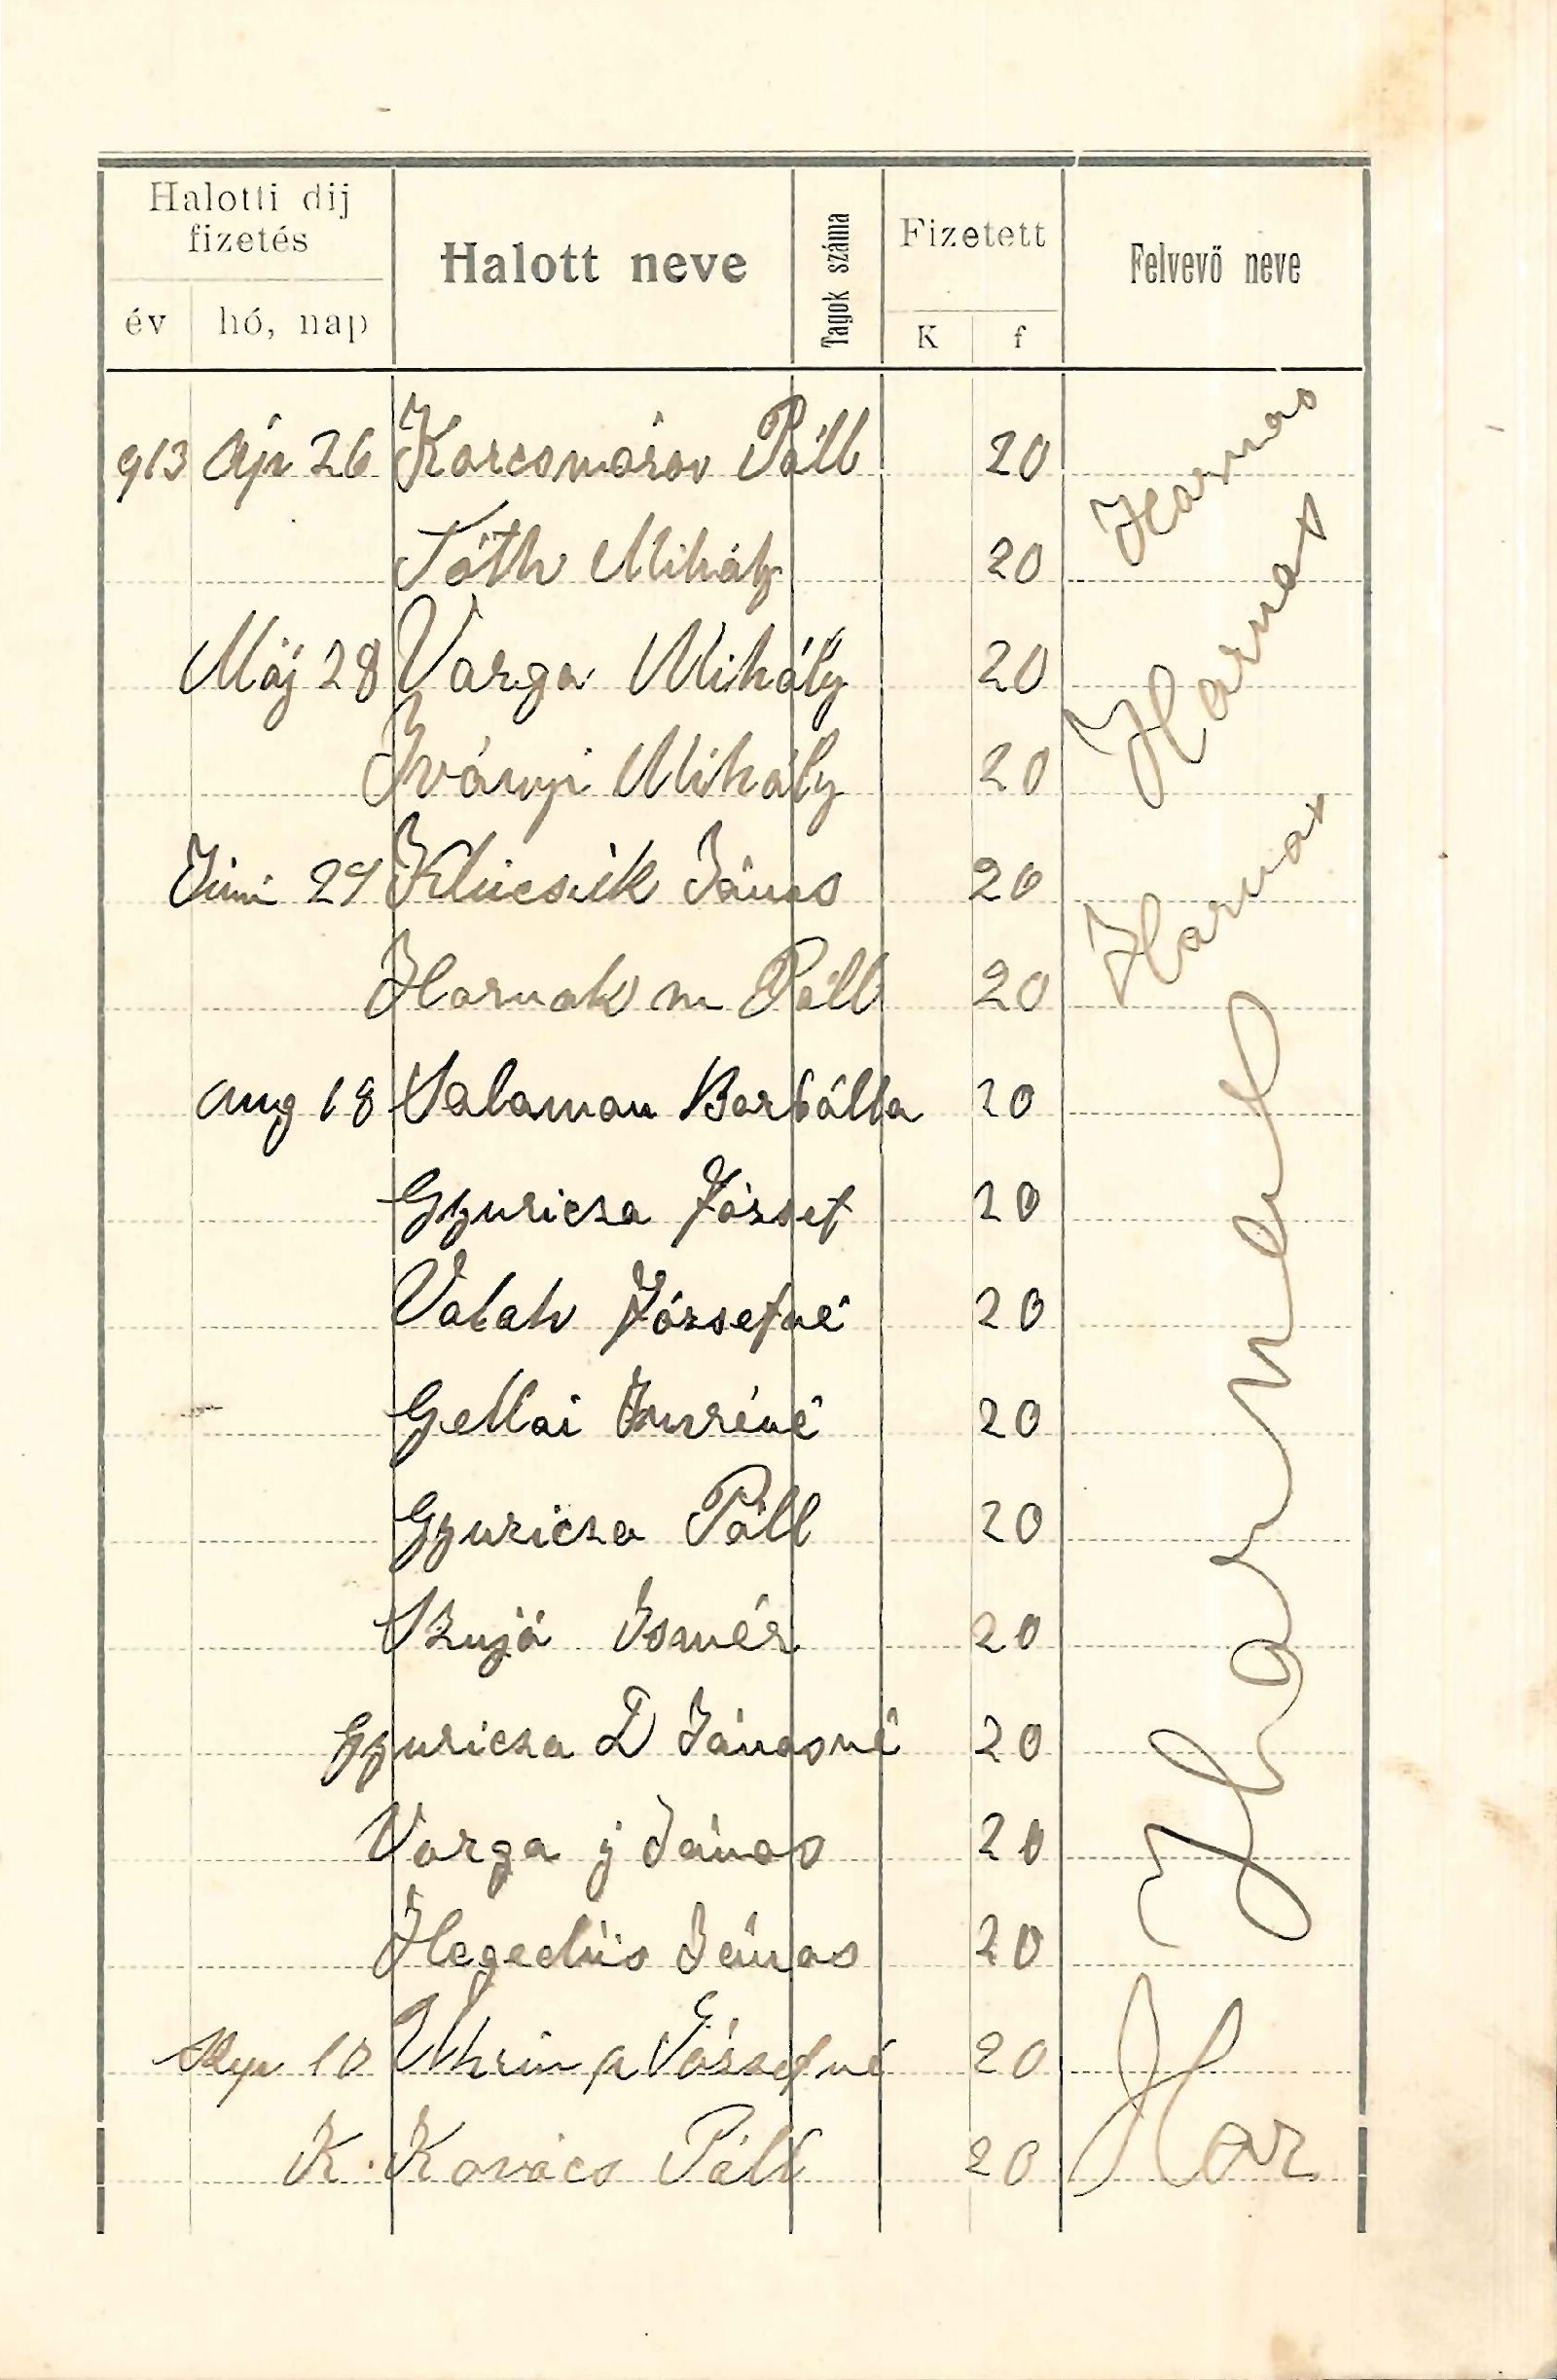 Halotti dij fizetés
Halott neve
Tagok száma
Fizetett
Felvevő neve
év hó, nap
K f
913 Ápr 26 Korcsmáros Páll 20
Tóth Mihály 20
Máj 28 Varga Mihály 20
Iványi Mihály 20
Júni 29 Klucsik János 20
Harnak m Páll 20
Aug 18 Salamon Borbálla 20
Gyuricza József 20
Valah Józsefné 20
Gellai Imréné 20
Gyuricza Páll 20
Szujó 20
Gyuricza D Jánosné 20
Varga j János 20
Hegedüs János 20
Szep 10 Uhrin p Józsefné 20
K. Kovács Páll 20
Har